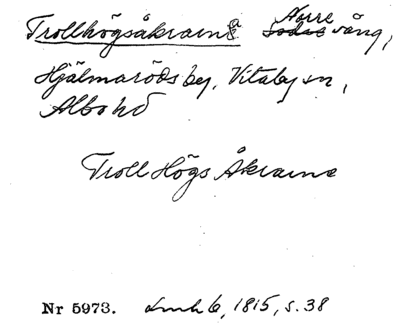 Trollhögsåkrarna Norre vång,
Hjälmaröds by, Vitaby sn,
Albo hd
Troll Högs Åkrarne
Nr 5973. Lmh 6, 1815, s. 38